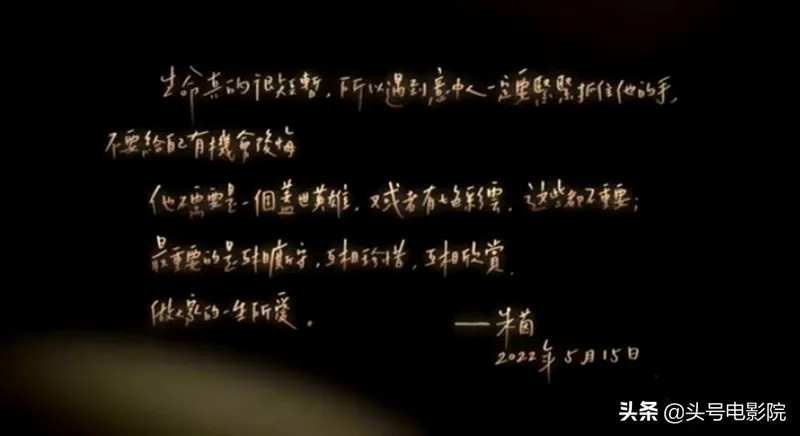 生命真的很短暫，所以遇到意中人一定要緊緊抓住他的手，
不要給自己有機會後悔
他不需要是一個蓋世英雄，又或者有七色彩雲，这些都不重要；
最重要的是互相廝守，互相珍惜，互相欣賞，
做大家的一生所愛。
——朱茵
2022年5月15日
头条 @头号电影院